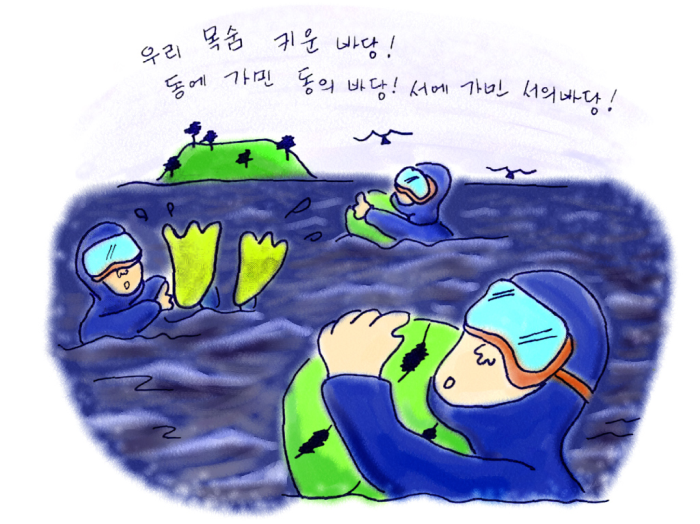 우리 목숨 키운 바당!
동에 가민 동의 바당! 서에 가민 서의바당!